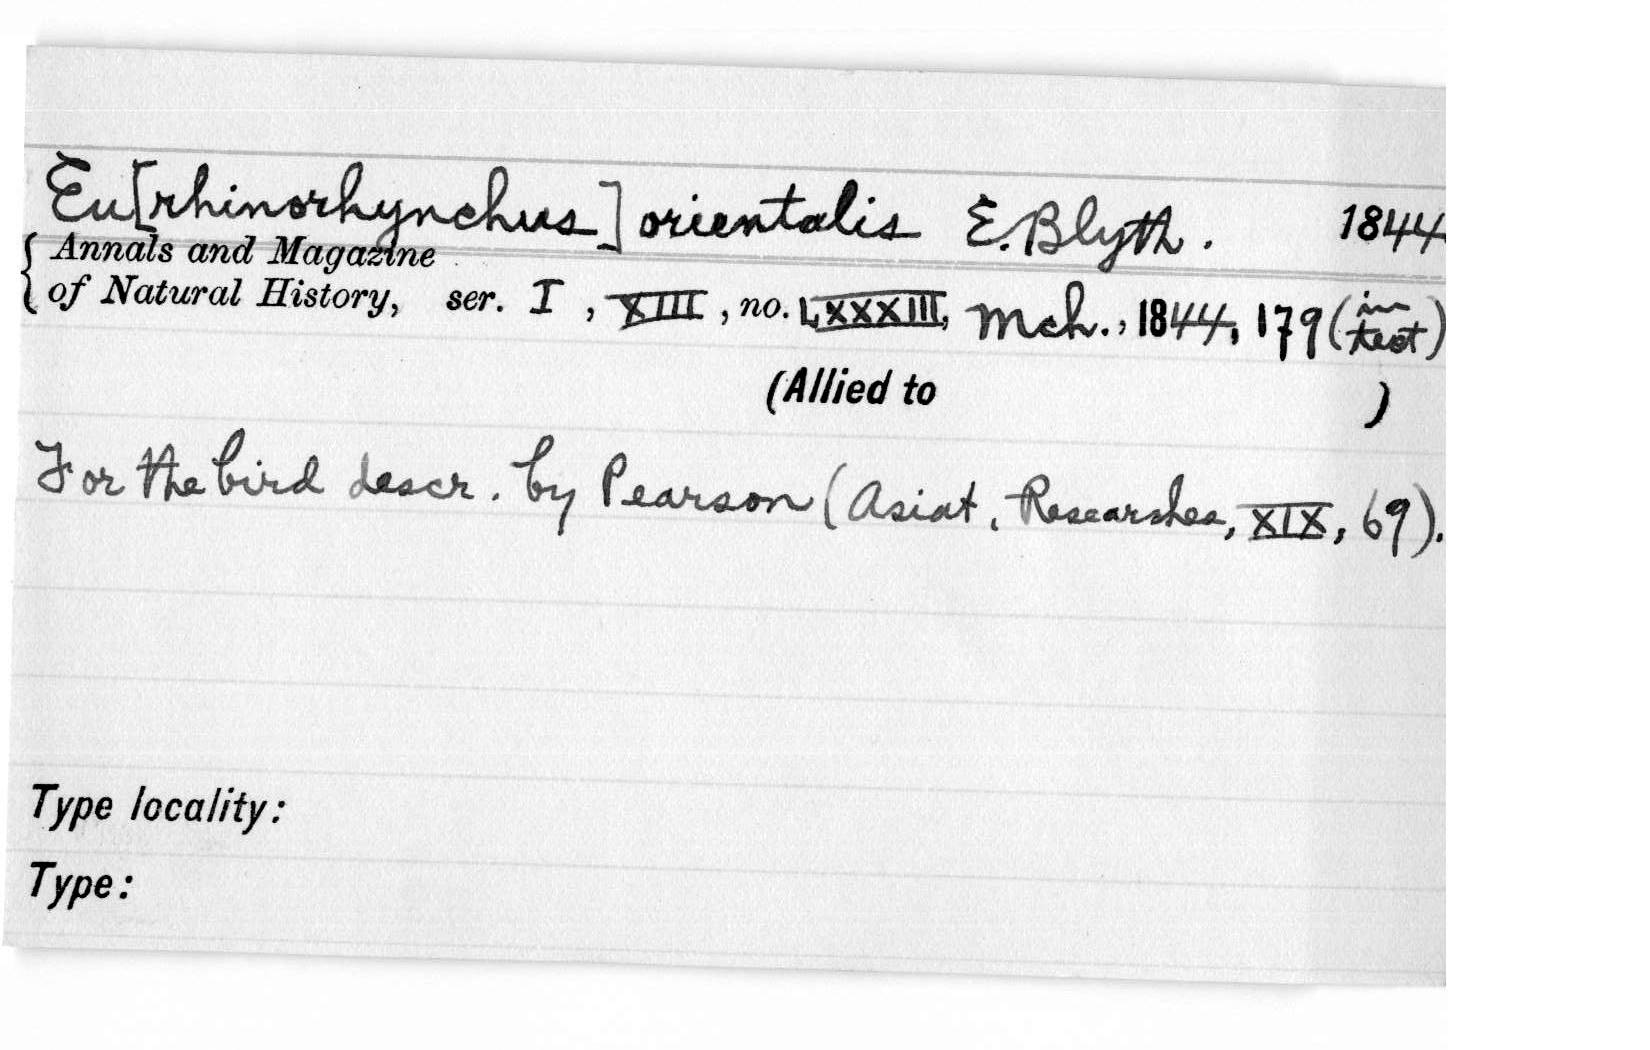 Eu[rhinorhynchus] orientalis E. Blyth. 1844
Annals and Magazine
of Natural History, ser. I, XIII, no. LXXXIII, Mch., 1844, 179 (in text)
(Allied to )
For the bird descr. by Pearson (Asiat. Researches, XIX, 69).
Type locality:
Type: